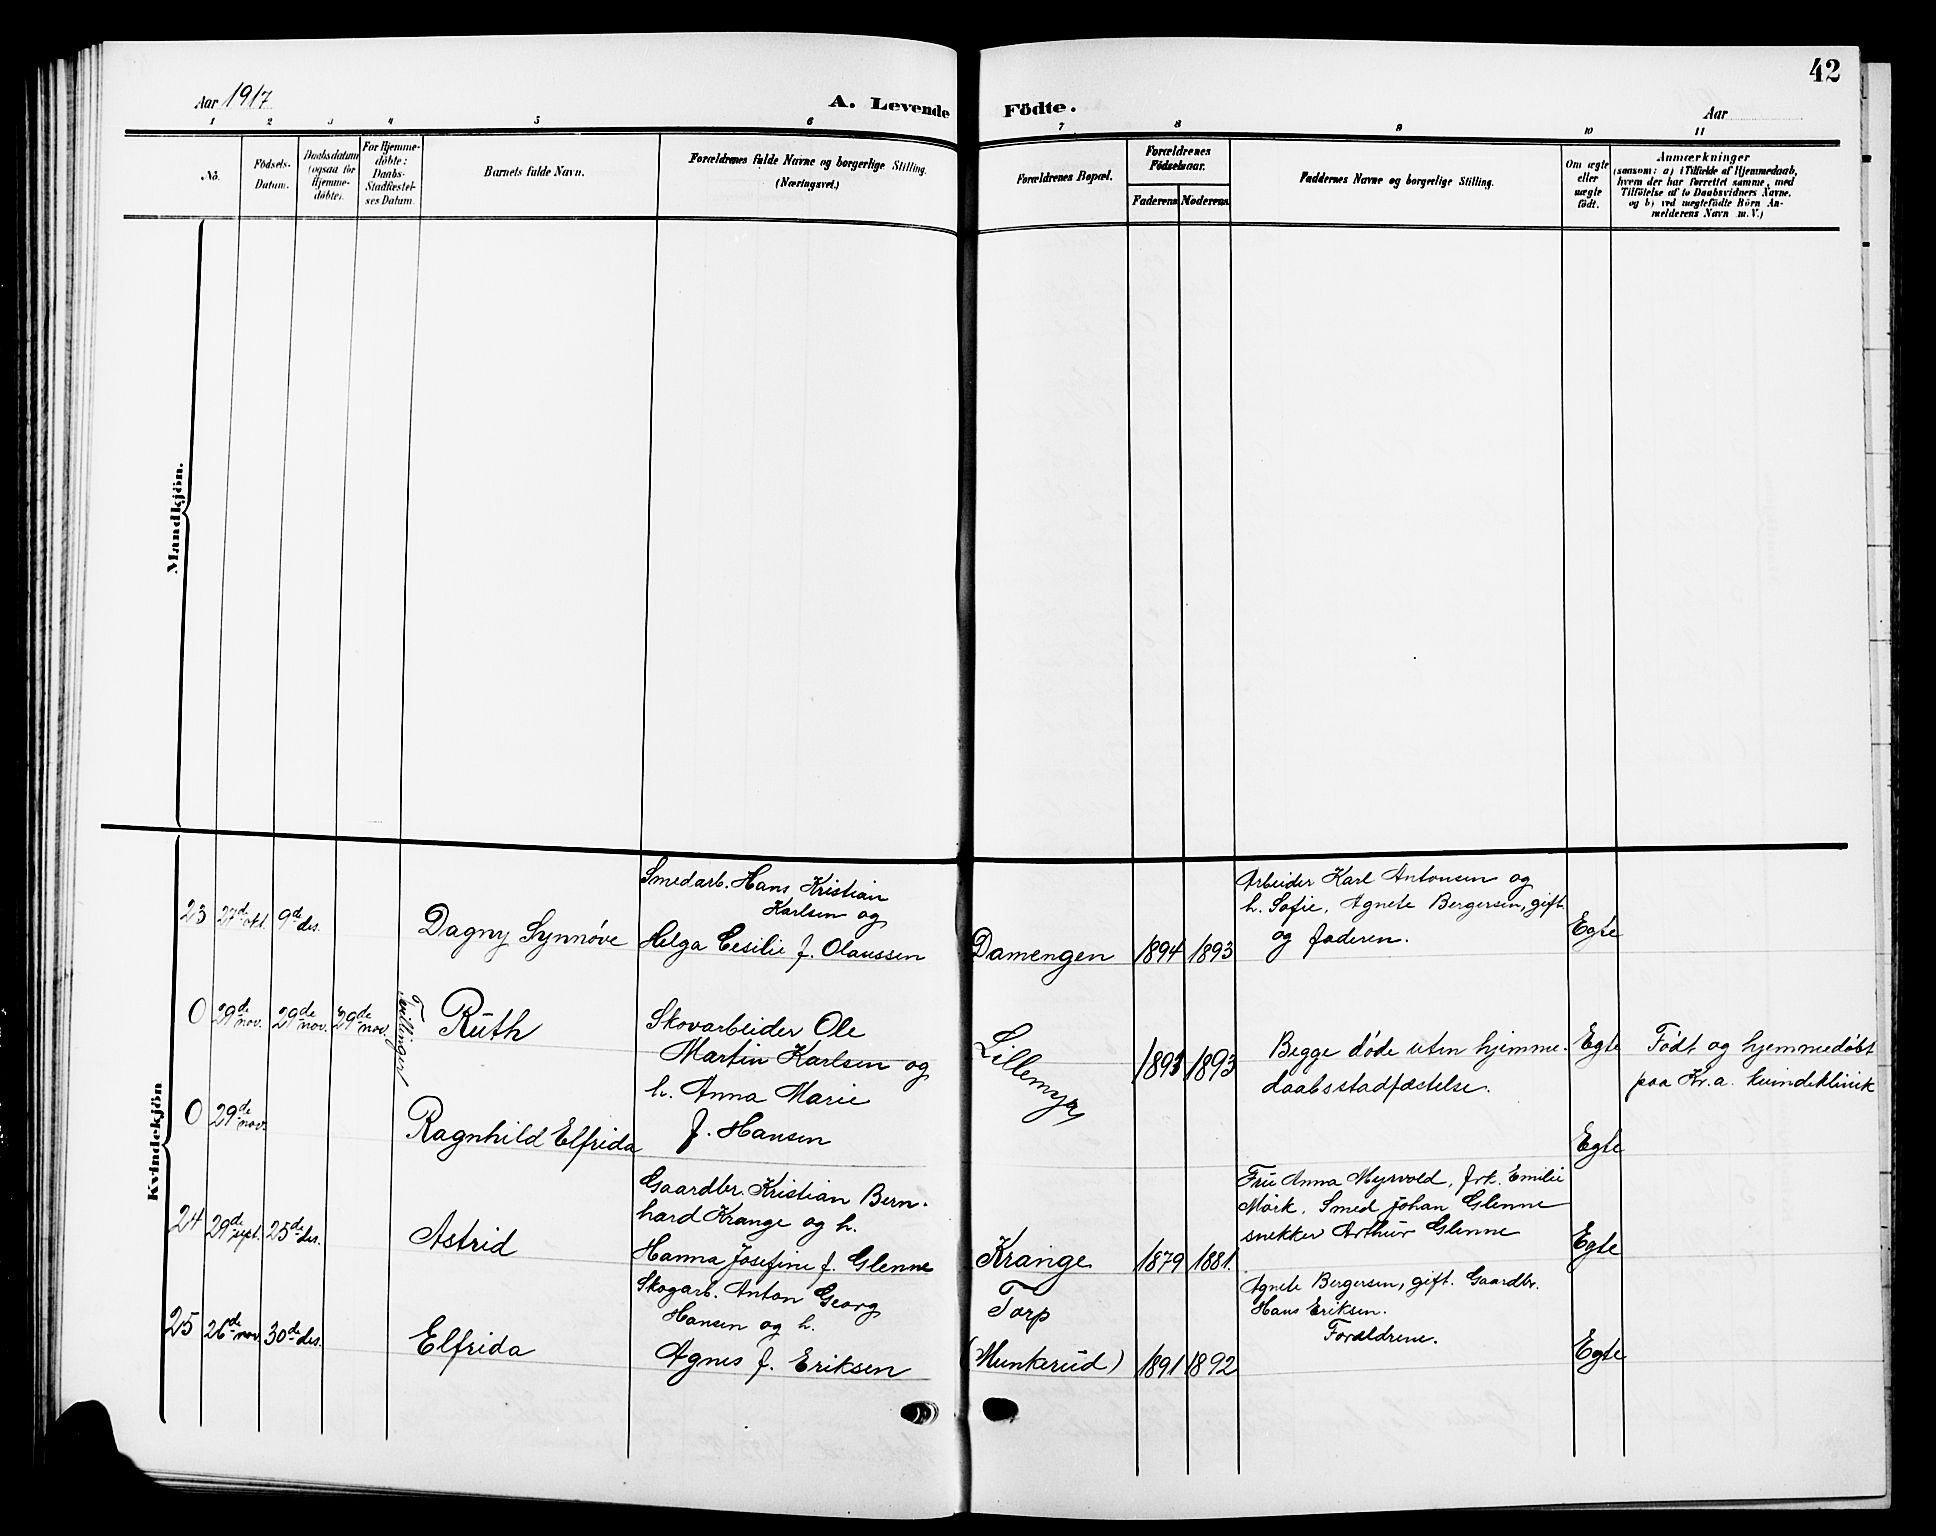 42
Aar 1917
A. Levende Födte.
Aar
1 2 3 4 5 6 7 8 9 10 11
No.
Födsels-
Datum.
Daabsdatum
(ogsaa for
Hjemme-
döbte).
For Hjemme-
döbte:
Daabs-
Stadfæstel-
ses Datum.
Barnets fulde Navn.
Forældrenes fulde Navne og borgerlige Stilling.
(Næringsvei.)
Forældrenes Bopæl.
Forældrenes
Födselsaar.
Faderens Moderens
Faddernes Navne og borgerlige Stilling.
Om ægte
eller
uægte
födt.
Anmærkninger
(saasom: a) i Tilfælde af Hjemmedaab,
hvem der har forrettet samme, med
Tilföielse af to Daabsvidners Navne.
og b) ved uægtefödte Börn An-
melderens Navn m. V.)
Mandkjön.
Kvindekjön
23 27de okt. 9de des.
Dagny Synnøve
Smedarb. Hans Kristian
Karlsen og
Helga Cesilie f. Olaussen
Damengen 1894 1893
Arbeider Karl Antonsen og
h. Sofie, Agnete Bergersen, gift.
og faderen.
Egte
0 29de nov. 29de nov. 29de nov.
Tvillinger
Ruth
Skovarbeider Ole
Martin Karlsen og
h. Anna Marie
f. Hansen
Lillemyr 1893 1893
Begge døde uten hjemme-
daabsstadfæstelse.
Egte
Født og hjemmedøbt
paa Kr.a. kvindeklinik
0 29de nov.
Ragnhild Elfrida
Egte
24 29de sept. 25de des.
Astrid
Gaardbr. Kristian Bern-
hard Krange og h.
Hanna Josefine f. Glenne
Krange 1879 1881.
Frü Anna Myrvold, frk. Emilie
Mörk, Smed Johan Glenne
snekker Arthur Glenne
Egte
25 26de nov. 30de des.
Elfrida
Skogarb. Anton Georg
Hansen og h.
Agnes f. Eriksen
Torp
(Munkerud) 1891 1892
Agnete Bergersen, gift. Gaardbr.
Hans Eriksen.
Forældrene.
Egte